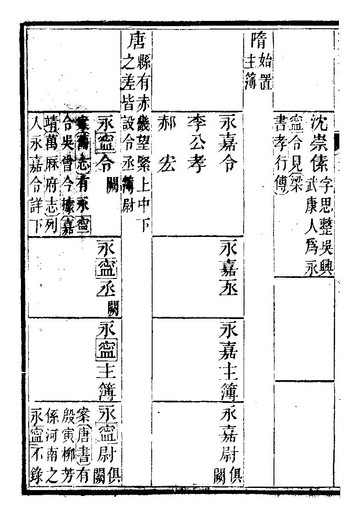 沈崇傃字思整吳興
武康人爲永
寧令見梁
書孝行傳
隋始置
主簿
永嘉令
李公孝
郝宏
永嘉丞
永嘉主簿
永嘉尉俱
闕
唐縣有赤畿望緊上中下
之差皆設令丞簿尉
永寧令闕
案舊志有永寧
令吳曾今據嘉
靖萬厤府志列
人永嘉令詳下
永寧丞闕
永寧主簿
永寧尉俱
闕
案唐書有
殷寅柳芳
係河南之
永寧不錄